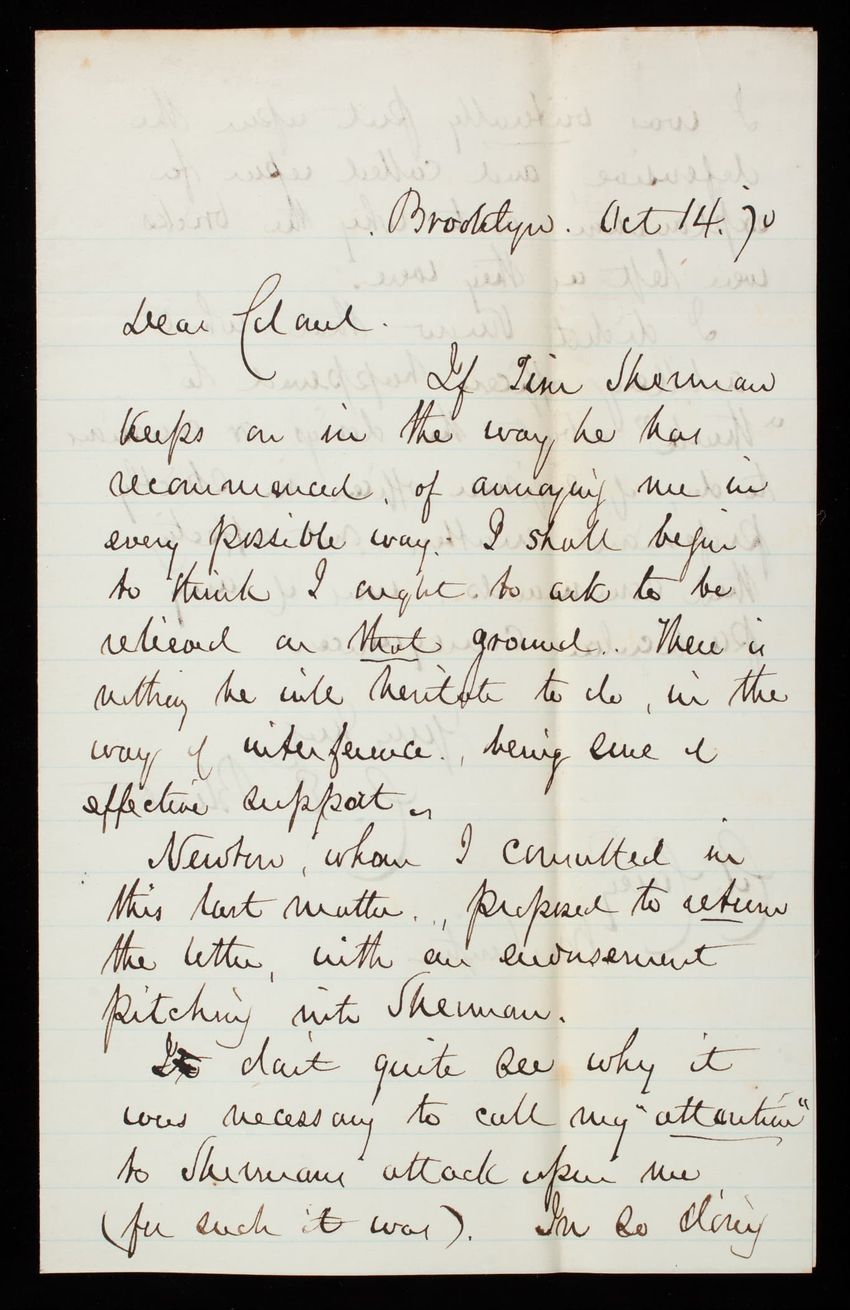 Brooklyn. Oct 14. 70
Dear Colonel.
If Tim Sherman
keeps on in the way he has
recommenced, of annoying me in
every possible way. I shall begin
to think I ought to ask to be
relieved on that ground.. There is
nothing he will hesitate to do, in the
way of interference., being sure of
effective support.
Newton, whom I consulted in
this last matter., proposed to return
the letter, with an endorsement
pitching into Sherman.
I don't quite see why it
was necessary to call my "attention"
to Shermans attack upon me
(for such it was). In so doing